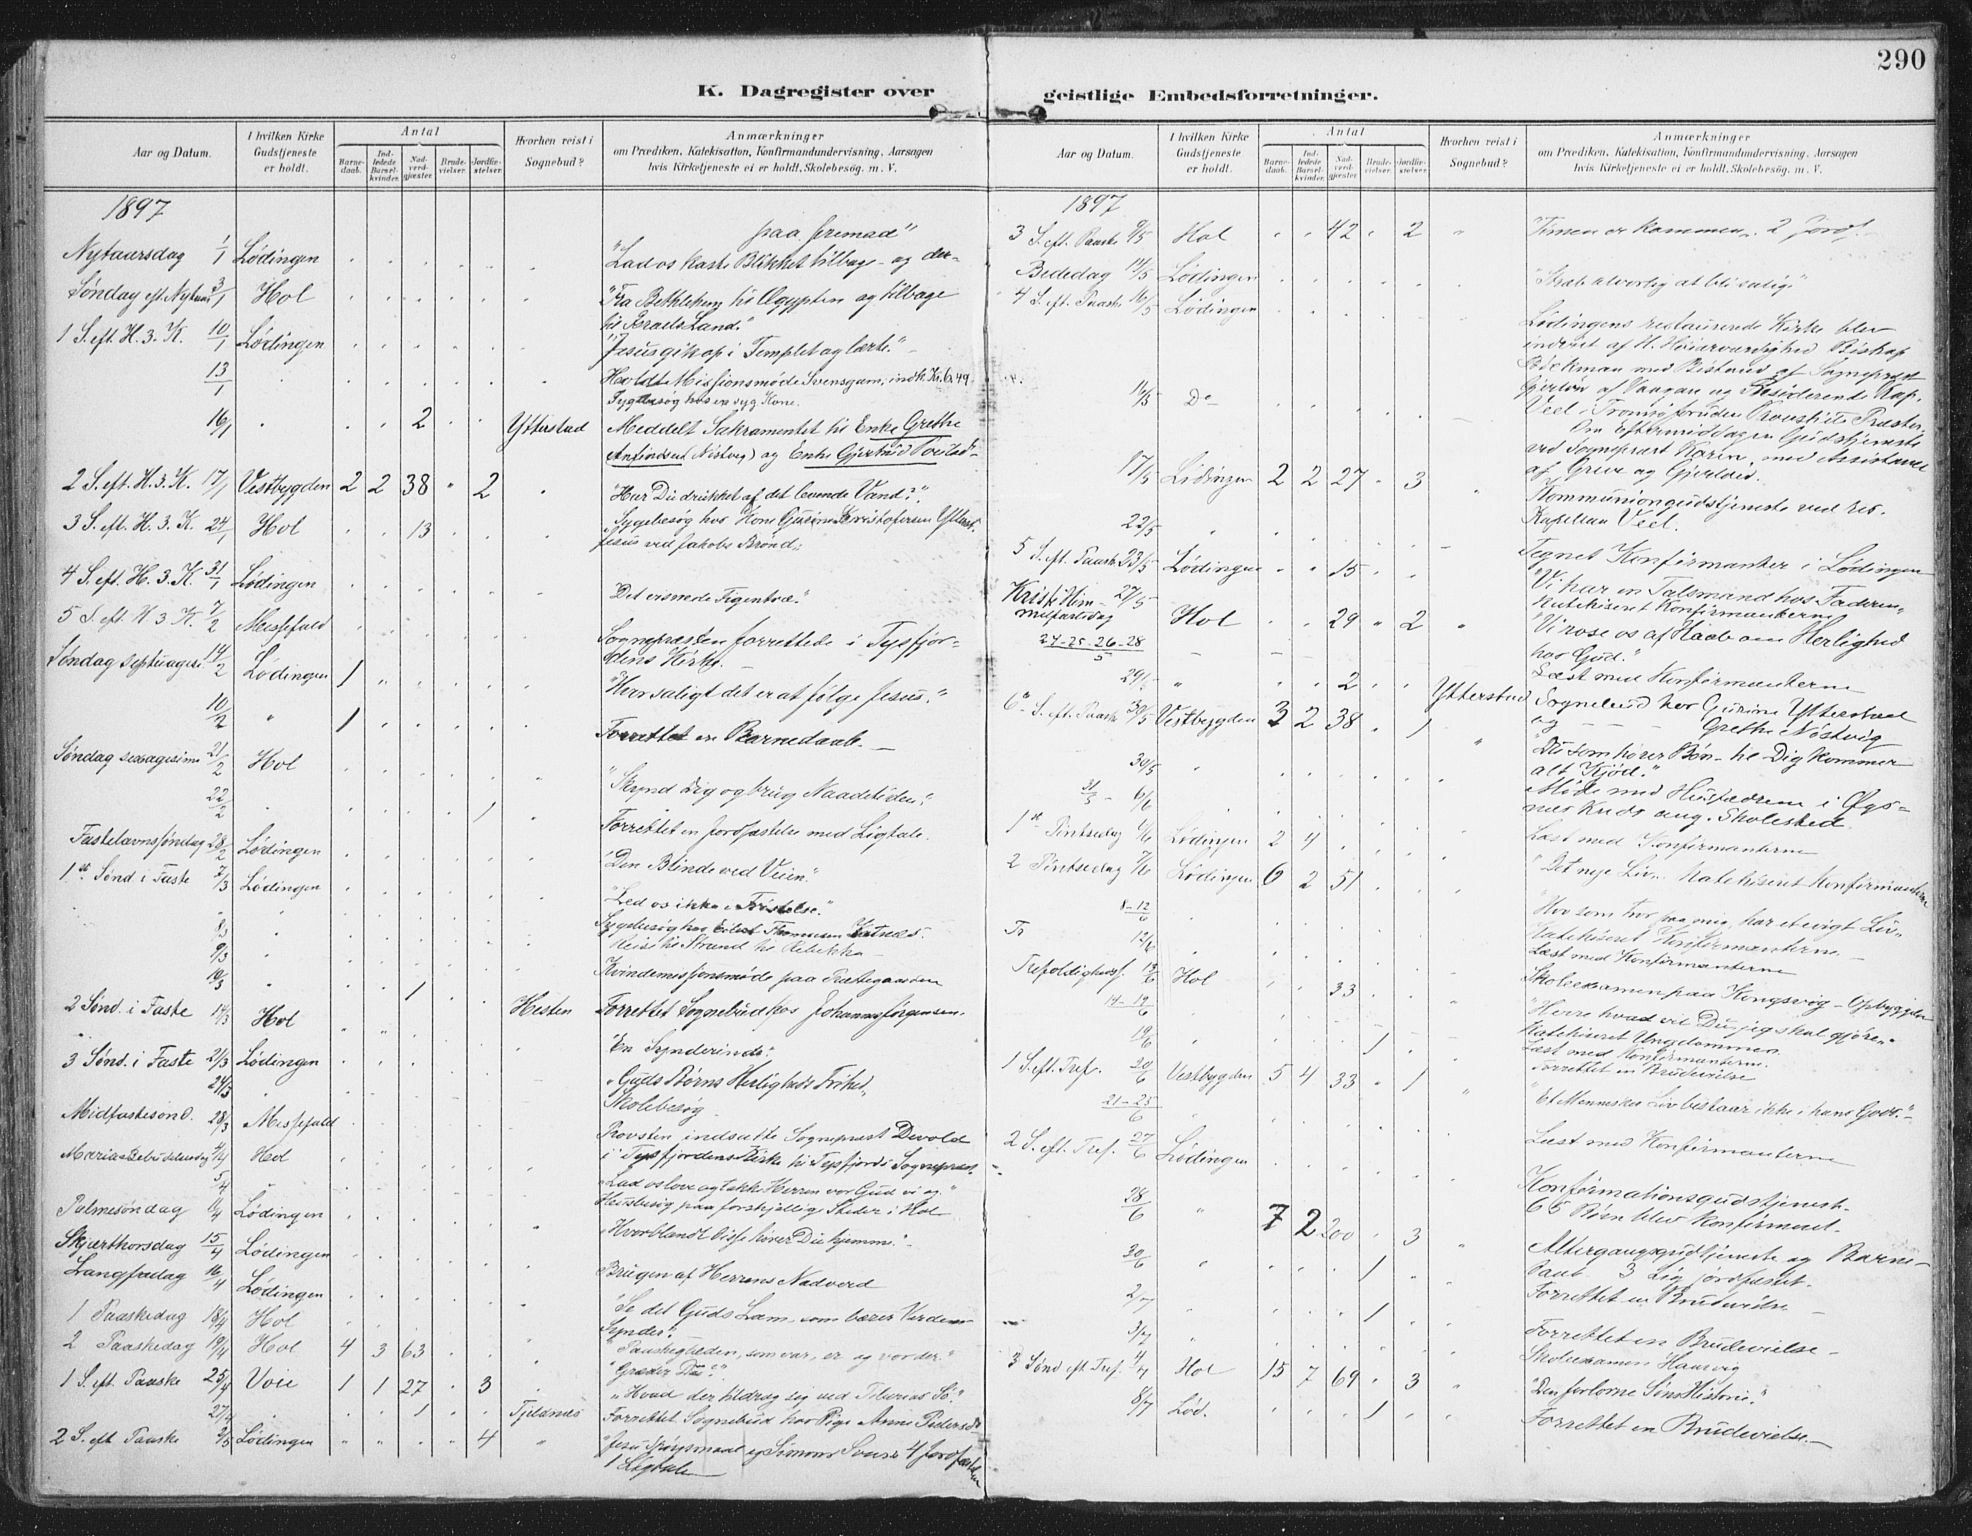 290
K. Dagregister over geistlige Embedsforretninger.
Aar og Datum. I hvilken Kirke Gudstjeneste er holdt. Antal Barnedaab. Indledede Barselkvinder. Nadverdgjæster. Brudevielser. Jordfæstelser. Hvorhen reist i Sognebud? Anmærkninger om Prædiken, Katekisation, Konfirmandundervisning, Aarsagen hvis Kirketjeneste ei er holdt, Skolebesøg m. V.
1897
paa fremad"
Nytaarsdag 1/1 Lødingen "Lad os kaste Blikket tilbage og der-
Søndag eft Nytaar 3/1 Hol "Fra Bethlehem til Ægypten og tilbage
til Israels Land."
1 S. eft. H. 3. K. 10/1 Lødingen "Jesus gik op i Templet og lærte."
13/1 Holdt Missionsmøde
Sygebesøg hos en syg Kone.
16/1 2 Ytterstad Meddelt Sakramentet til Enke Grethe
Nöstvig) og Enke Gjertrud
2 S. eft. H. 3. K. 17/1 Vestbygden 2 2 38 " 2 "Har Du drukket af det levende Vand?"
3 S. eft. H. 3. K. 24/1 Hol 13 Sygebesøg hos Kone
Jesus ved Jakobs Brønd.
4 S. eft. H. 3. K. 31/1 Lødingen "Det visnede Figentræ."
5 S. eft H 3. K. 7/2 Messefald Sognepræsten forrettede i Tysfjor-
dens Kirke.
Søndag septuagesi 14/2 Lødingen 1 "Hvor saligt det er at følge Jesus."
10/2 " 1 Forrettet en Barnedaab.
Søndag sexagesimi 21/2 Hol "Skynd Dig og brug Naadetiden."
22/2 1 Forrettet en Jordfæstelse med Ligtale.
Fastelavnssøndag 28/2 Lødingen "Den Blinde ved Veien."
1ste Sønd. i Faste 7/3 Lødingen "Led os ikke i Fristelse."
8/3 Sygebesøg hos
9/3 Reise til Strand til Rebekka
10/3 1 Kvindemissionsmøde paa Præstegaarden
2 Sønd. i Faste 14/3 Hol Hesten Forrettet Sognebud hos Johannes Jörgensen.
"En Synderinde."
3 Sønd. i Faste 21/3 Lødingen "Guds Børns Herligheds Frihed"
24/3 Skolebesøg.
Midfastesønd. 28/3 Messefald Provsten indsatte Sognepræst Devold
Mariæ Bebudelsesdag 4/4 Hol i Tysfjordens Kirke til Tysfjords Sognepræst
5/4 Lad os love og takke Herren vor Gud
Husbesøg paa forskjellige Steder i Hol
Palmesøndag 11/4 Lødingen "Hvorblandt disse hører Du hjemme."
Skjærthorsdag 15/4 Lødingen Brugen af Herrens Nadverd
Langfredag 16/4 Lødingen "Se det Guds Lam, som bærer Verdens
Synder."
1 Paaskedag 18/4 Hol "Paaskeglæden, som var, er og vorder."
2 Paaskedag 19/4 Hol 4 3 63 "Græder Du?"
1 S. eft. Paaske 25/4 Voie 1 1 27 3 "Hvad der tildrog sig ved Tiberias Sö."
27/4 1 Tjeldnes Forrettet Sognebud hos Pige Anne
2 S. eft Paaske 2/5 Lødingen 4 "Jesu Spörgsmaal og Simons Svar." 4 Jordfæstelser
1 Ligtale
Aar og Datum. I hvilken Kirke Gudstjeneste er holdt. Antal Barnedaab. Indledede Barselkvinder. Nadverdgjæster. Brudevielser. Jordfæstelser. Hvorhen reist i Sognebud? Anmærkninger om Prædiken, Katekisation, Konfirmandundervisning, Aarsagen hvis Kirketjeneste ei er holdt, Skolebesøg m. V.
1897
3 S. eft. Paaske 9/5 Hol 42 2 "Timen er kommen". 2 Jordf.
Bededag 14/5 Lødingen alvorlig at bli salig."
4 S. eft. Paaske 16/5 Lødingen Lødingens restaurerede Kirke blev
indviet af H. Høiærværdighed Biskop
Böckman med Bistand af Sognepræst
16/5 Do af Vaagan og Residerende Kap.
Veel i
Om Eftermiddagen Gudstjeneste
ved Sognepræst med Assistance
17/5 Lödingen 2 2 27 3 af Greve og
Kommuniongudstjeneste ved res.
22/5 " Kapellan Veel.
5 S. eft. Paaske 23/5 Lødingen 15 Tegnet Konfirmanter i Lødingen
"Vi har en Talsmand hos Faderen"
Katekiseret Konfirmanterne
Kristi Him- 27/5
melfartsdag Hol 29 " 2 "Vi rose os af Haab om Herlighed
24-25-26-28/5 hos Gud."
Læst med Konfirmanterne
29/5 " 2 Ytterstad Sognebud hos Gurine Ytterstad
6 S. eft. Paaske 30/5 Vestbygden 3 2 38 1 og Grethe Nöstvig
"Du som hører Bøn til Dig kommer
30/5 alt Kjød."
31/5 - 6/6 Møde med Husfædrene i
ang. Skolested.
1ste Pintsedag 6/6 Lødingen 2 4 Læst med Konfirmanterne
2 Pintsedag 7/6 Lødingen 6 2 51 "Det nye Liv". Katekiseret Konfirmanterne
8-12/6 "Hvo som tror paa mig, har et evigt Liv"
Tr 12/6 Katekiseret Konfirmanterne.
Læst med Konfirmanterne
Trefoldighedsf. 13/6 Hol 33 Skoleexamen paa Kongsvog - Opbyggelse
14-19/6 "Herre hvad vil Du, jeg skal gjöre"
Katekiseret Ungdommen
19/6 1 Læst med Konfirmanterne.
1 S. eft. Tref. 20/6 Vestbygden 5 4 33 " 1 Forrettet en Brudevielse
21-25/6 "Et Menneskes Liv bestaar ikke i hans Gods."
2 S. eft. Tref. 27/6 Lødingen Læst med Konfirmanterne
Konfirmationsgudstjeneste
28/6 " 7 2 200 3 65 Børn blev konfirmeret.
Altergangsgudstjeneste og Barne-
30/6 1 daab. 3 Lig jordfæstet.
2/7 1 Forrettet en Brudevielse
3/7 Forrettet en Brudevielse
Skoleexamen
3 Sønd eft Tref. 4/7 Hol 15 7 69 3 "Den forlorne Søns Historie."
8/7 Lød. 1 Forrettet en Brudevielse.